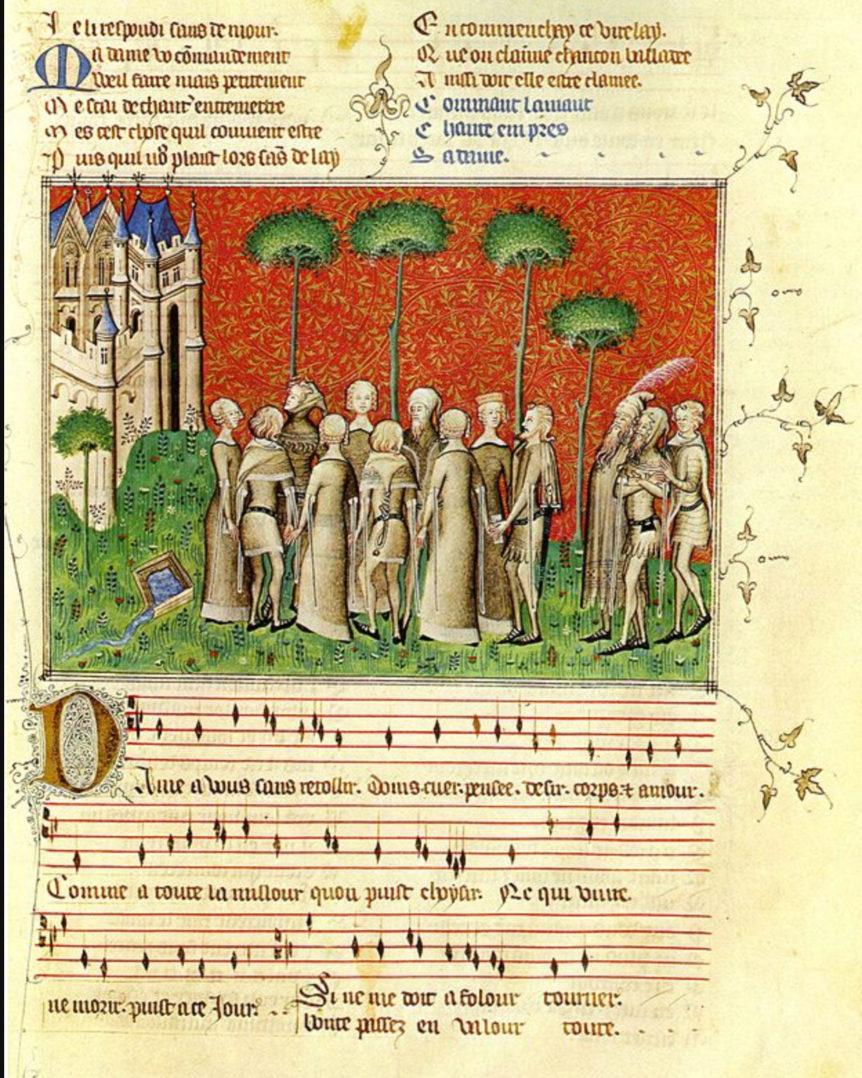 Je li respondi sans demour.
Ma dame vo cōmandement
Vueil faire mais petitement
Me scai de chant' entremettre
Mes cest chose quil couuient estre
Puis quil vo9 plaist lors sās delay
Encommenchay ce virelay.
Que on claime chancon balladee
Ainsi doit elle estre clamee.
Comment lamant
chante empres
Sa dame.
Dame a vous sans retollir. doins cuer. pensee. desir. corps. ⁊ amour.
Comme a toute la millour quon puist choysir. Ne qui viure.
ne morir. puist a ce jour.
Si ne me doit a folour tourner.
bonte passez en valour toute.